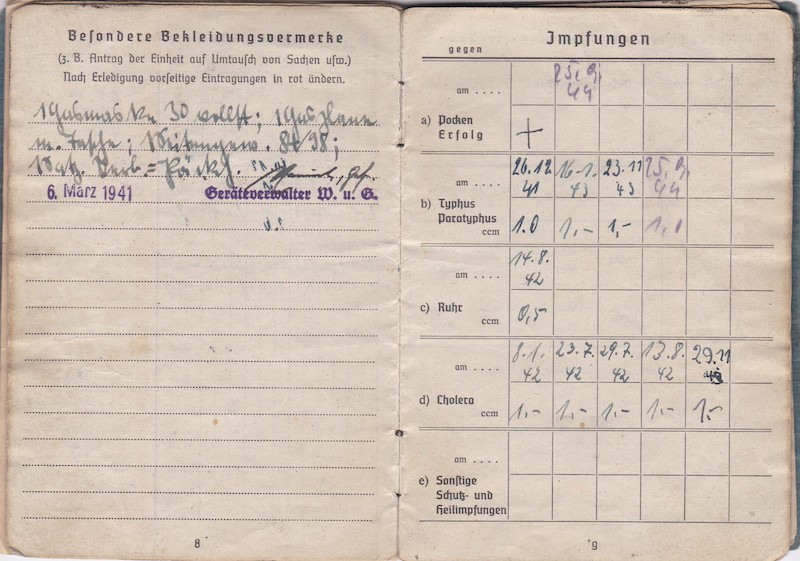 Besondere Bekleidungsvermerke
(z. B. Antrag der Einheit auf Umtausch von Sachen usw.)
Nach Erledigung vorseitige Eintragungen in rot ändern.
1 Gasmaske 30 vollst; 1 Gasplane
m. Tasche; Seitengew. 84/98;
Verb.=Päckch.
6. März 1941 Geräteverwalter W. u. G.
8
Impfungen
gegen
am . . . . 25. 9. 44
a) Pocken
Erfolg +
am . . . . 26.12 41 16.1. 43 23.11 43 25. 9. 44
b) Typhus
Paratyphus
ccm 1.0 1,- 1,- 1,0
am . . . . 14.8. 42
c) Ruhr
ccm 0,5
am . . . . 8.1. 42 23.7. 42 29.7. 42 13.8. 42 29.11
d) Cholera
ccm 1,- 1,- 1,- 1,- 1,-
am . . . .
e) Sonstige
Schutz- und
Heilimpfungen
9